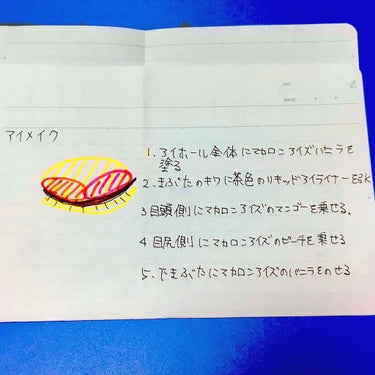 NO.
DATE
アイメイク
1. アイホール全体にマカロンアイズバニラを
塗る
2. まぶたのキワに茶色のリキッドアイライナーを引く
3 目頭側にマカロンアイズのマンゴーを乗せる.
4 目尻側にマカロンアイズのピーチを乗せる
5. 下まぶたにマカロンアイズのバニラをのせる